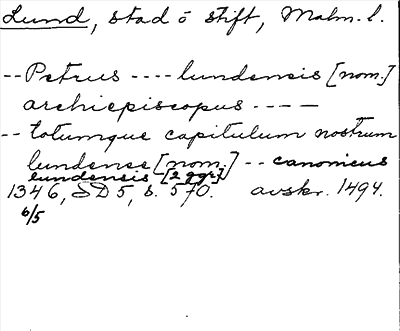 Lund, stad o stift, Malm. l.
-- Petrus ---- lundensis [nom.]
archiepiscopus ----
-- totumque capitulum nostrum
lundense [nom.] -- canonicus
lundensis [2 ggr]
1346, SD 5, s. 570. avskr. 1494.
6/5